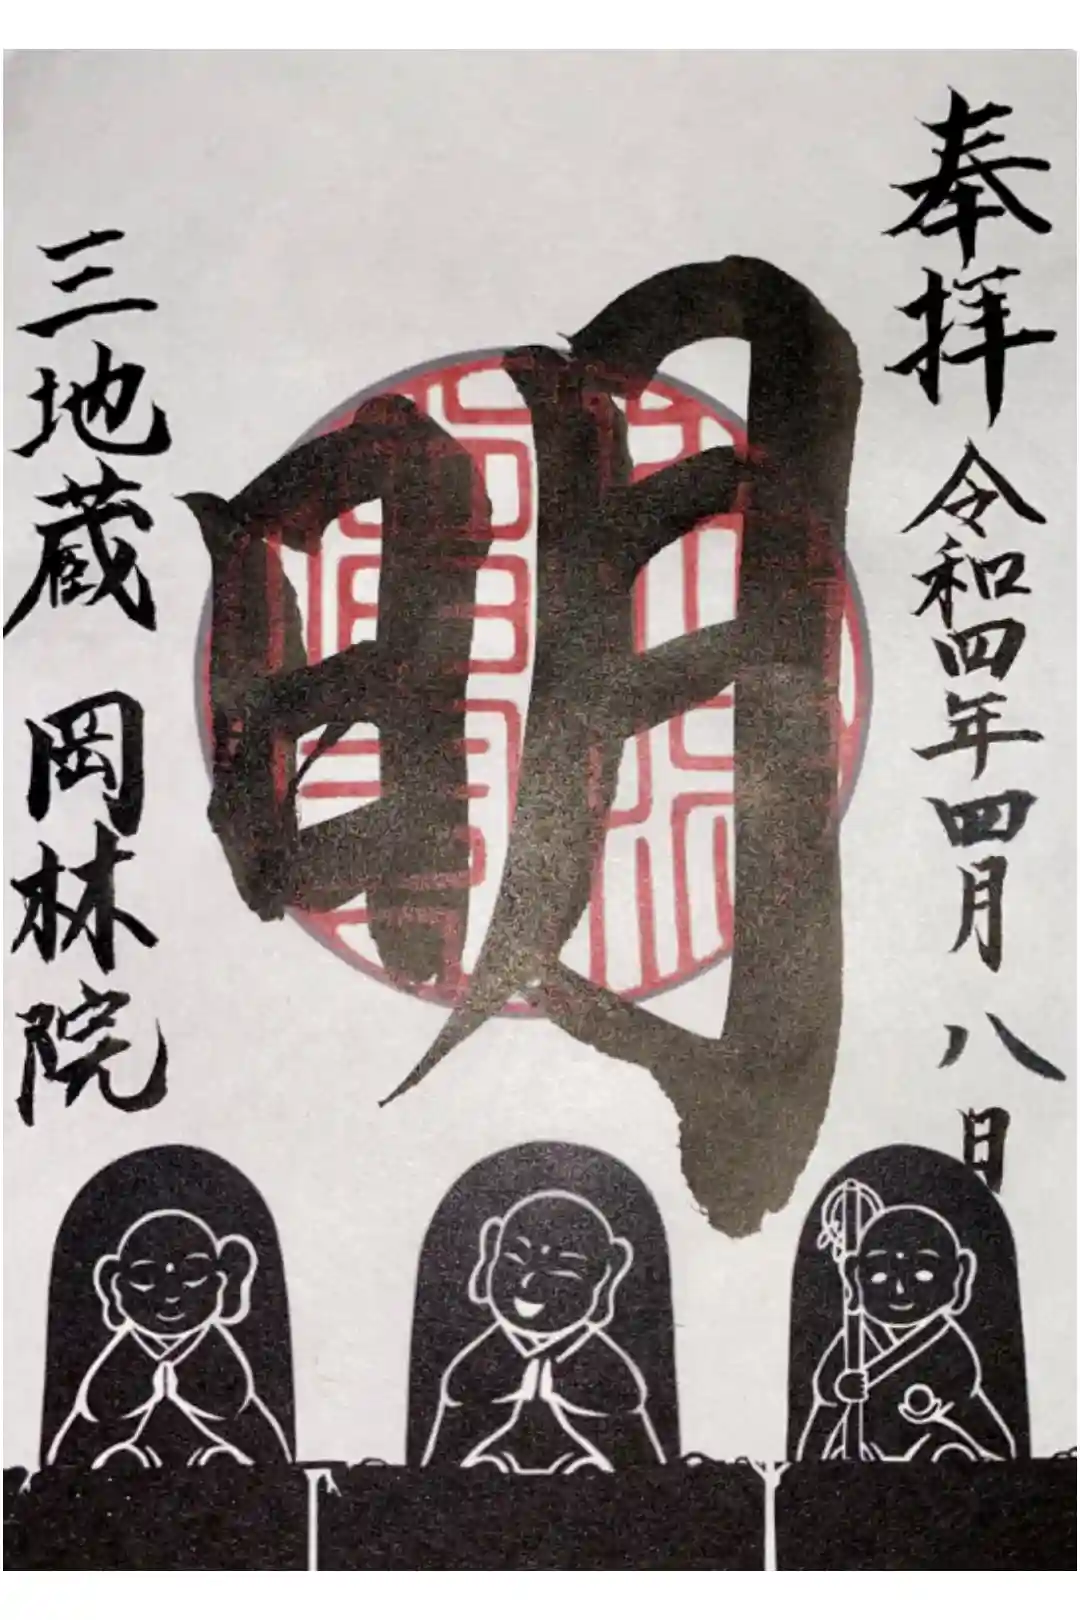 奉拝 令和四年四月八日
明
三地蔵 岡林院